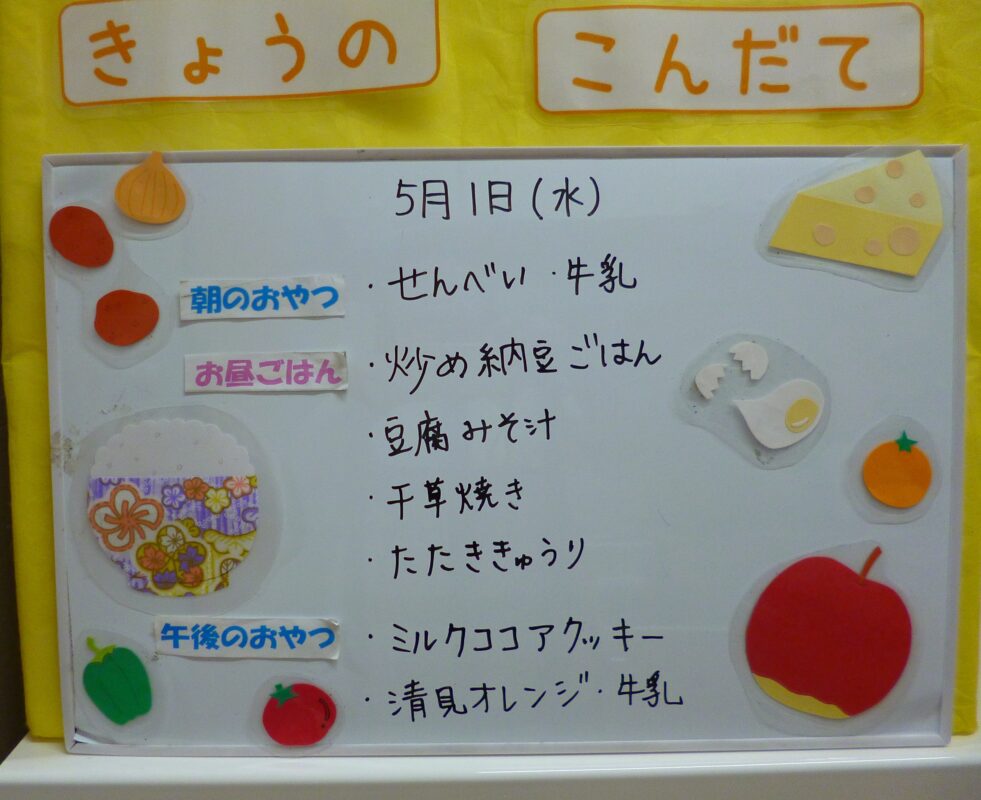 きょうの こんだて
5月1日(水)
朝のおやつ ・せんべい ・牛乳
お昼ごはん ・炒め納豆ごはん
・豆腐みそ汁
・千草焼き
・たたききゅうり
午後のおやつ ・ミルクココアクッキー
・清見オレンジ・牛乳